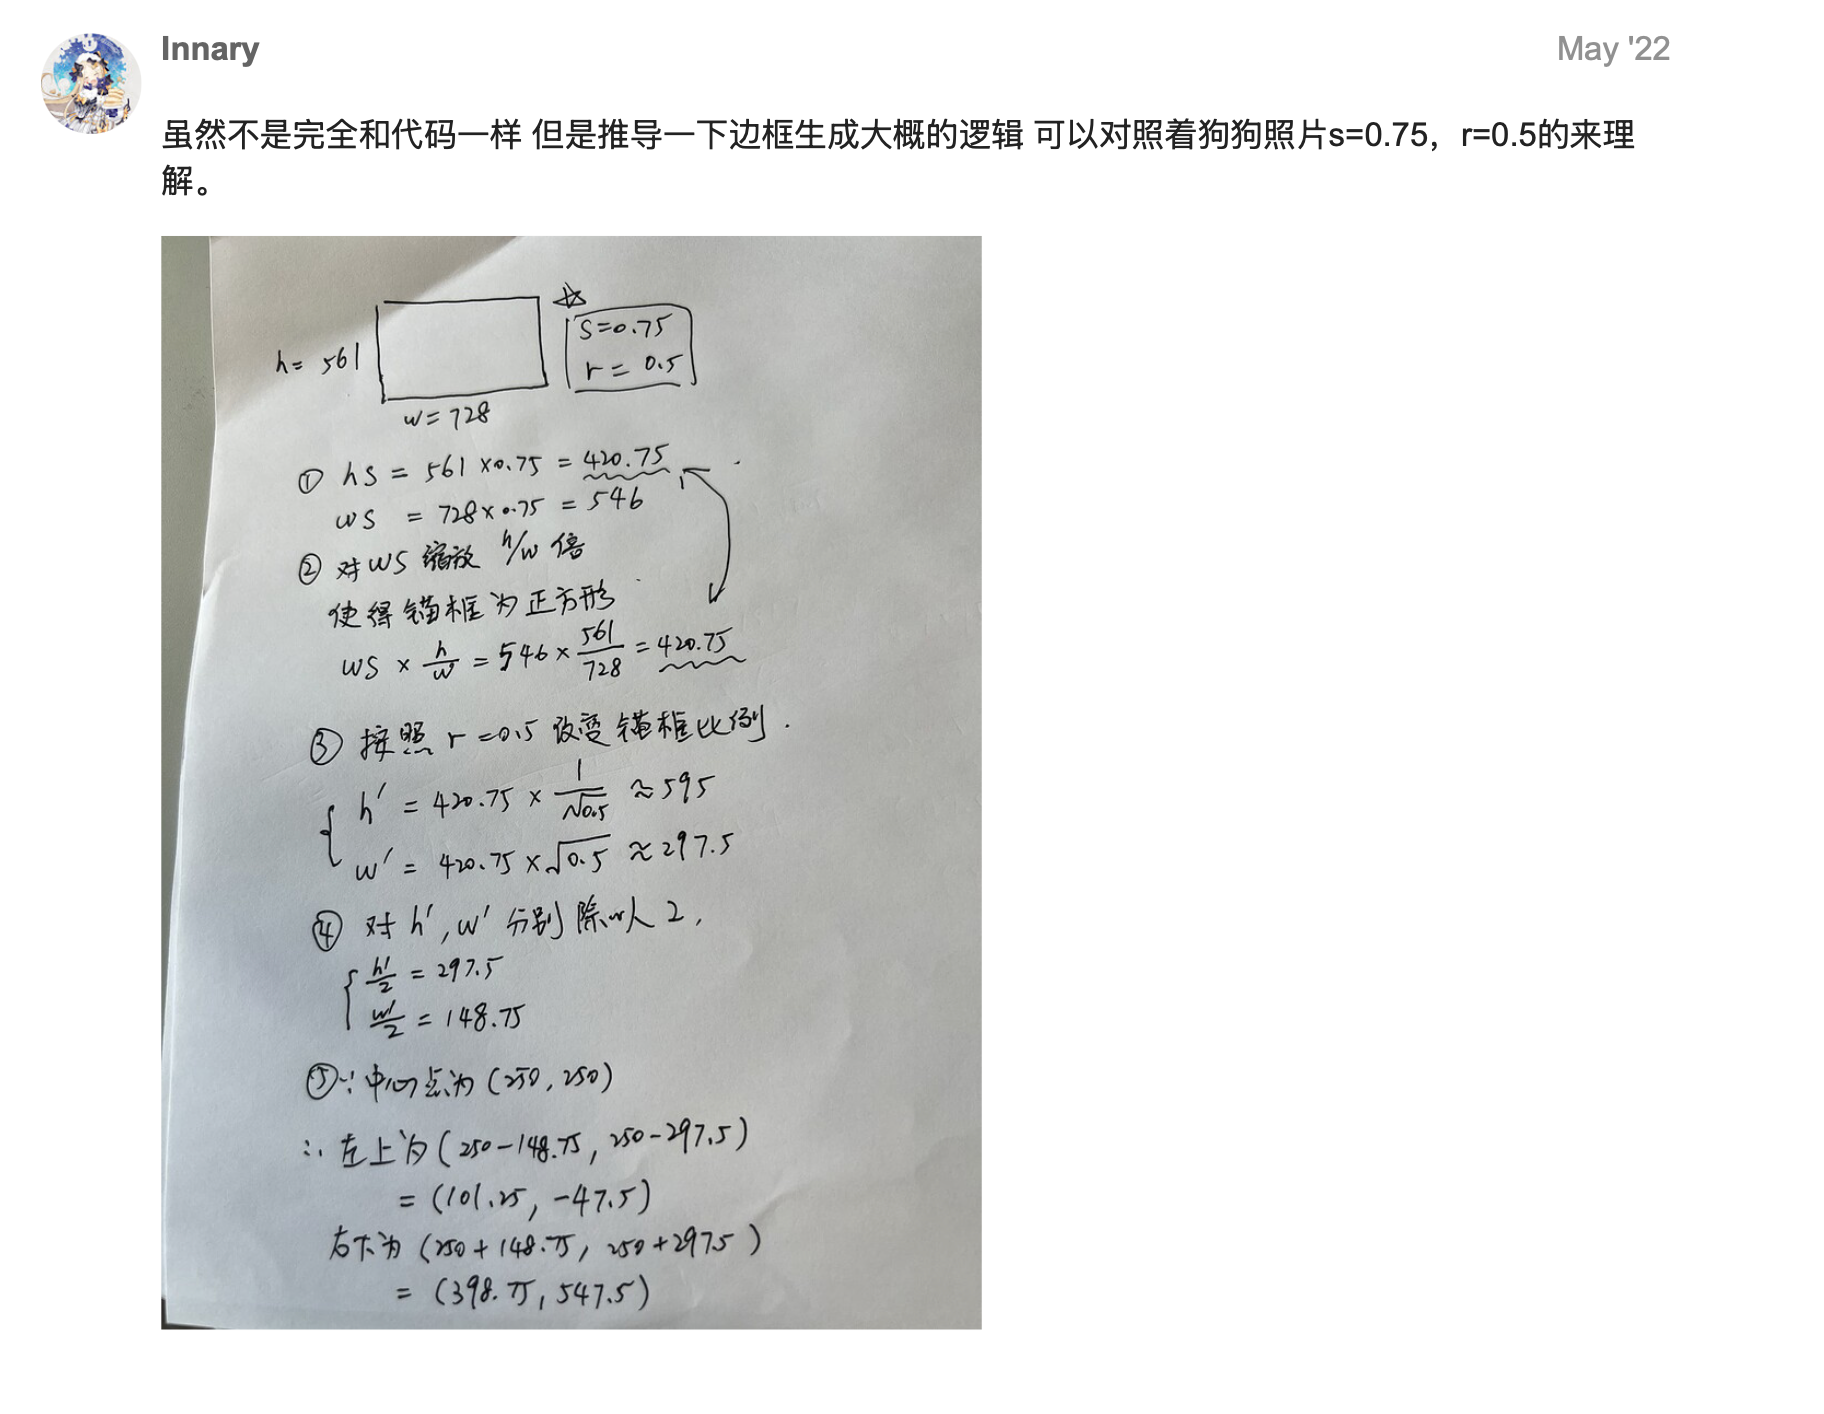 Innary
May '22
虽然不是完全和代码一样 但是推导一下边框生成大概的逻辑 可以对照着狗狗照片s=0.75，r=0.5的来理
解。
h= 561
S=0.75
r= 0.5
w=728
① hs = 561 ×0.75 = 420.75
ws = 728×0.75 = 546
② 对ws缩放 h/w 倍
使得锚框为正方形
ws × h/w = 546 × 561/728 = 420.75
③ 按照 r=0.5 改变锚框比例.
h' = 420.75 × 1/√0.5 ≈595
w' = 420.75 ×√0.5 ≈297.5
④ 对 h', w' 分别除以 2,
h'/2 = 297.5
w'/2 = 148.75
⑤∵中心点为 (250, 250)
∴ 左上为 (250-148.75, 250-297.5)
= (101.25, -47.5)
右下为 (250+148.75, 250+297.5)
= (398.75, 547.5)